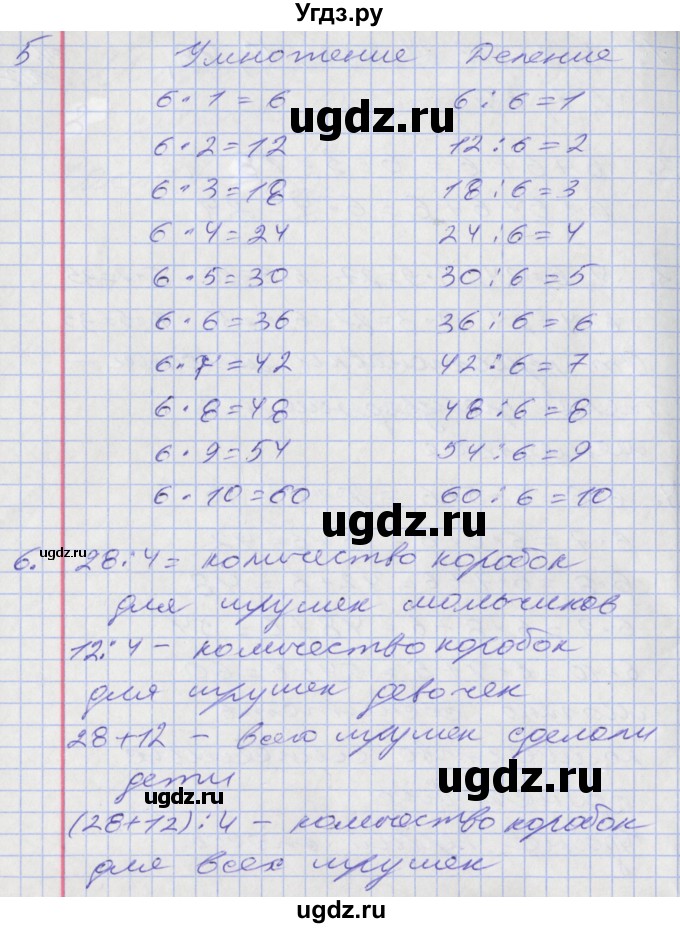 Угдз.ру
5 Умножение Деление
6 · 1 = 6 6 : 6 = 1
ugdz.ru
6 · 2 = 12 12 : 6 = 2
6 · 3 = 18 18 : 6 = 3
6 · 4 = 24 24 : 6 = 4
6 · 5 = 30 30 : 6 = 5
6 · 6 = 36 36 : 6 = 6
6 · 7 = 42 42 : 6 = 7
6 · 8 = 48 48 : 6 = 8
6 · 9 = 54 54 : 6 = 9
6 · 10 = 60 60 : 6 = 10
ugdz.ru
ugdz.ru
6. 28 : 4 = количество коробок
для игрушек мальчиков
12 : 4 – количество коробок
для игрушек девочек
28 + 12 – всего игрушек сделали
дети
ugdz.ru
ugdz.ru
(28 + 12) : 4 – количество коробок
для всех игрушек
ugdz.ru